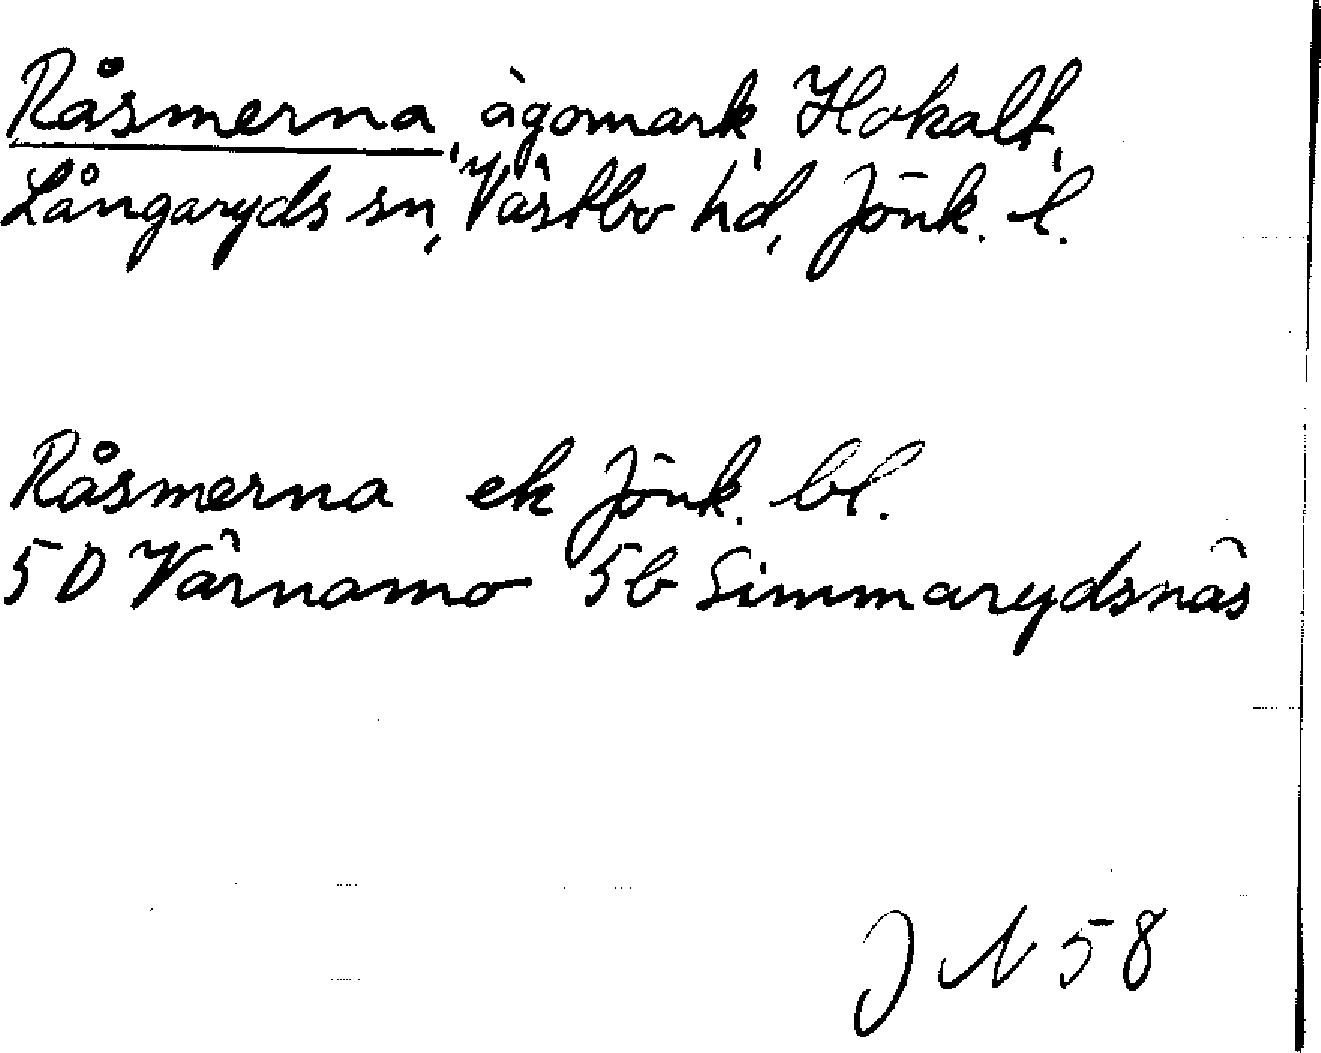 Råsmerna, ägomark, Hokalt,
Långaryds sn, Västbo hd, Jönk. l.
Råsmerna ek Jönk. bl.
5D Värnamo 5b Simmarydsnäs
J N 58